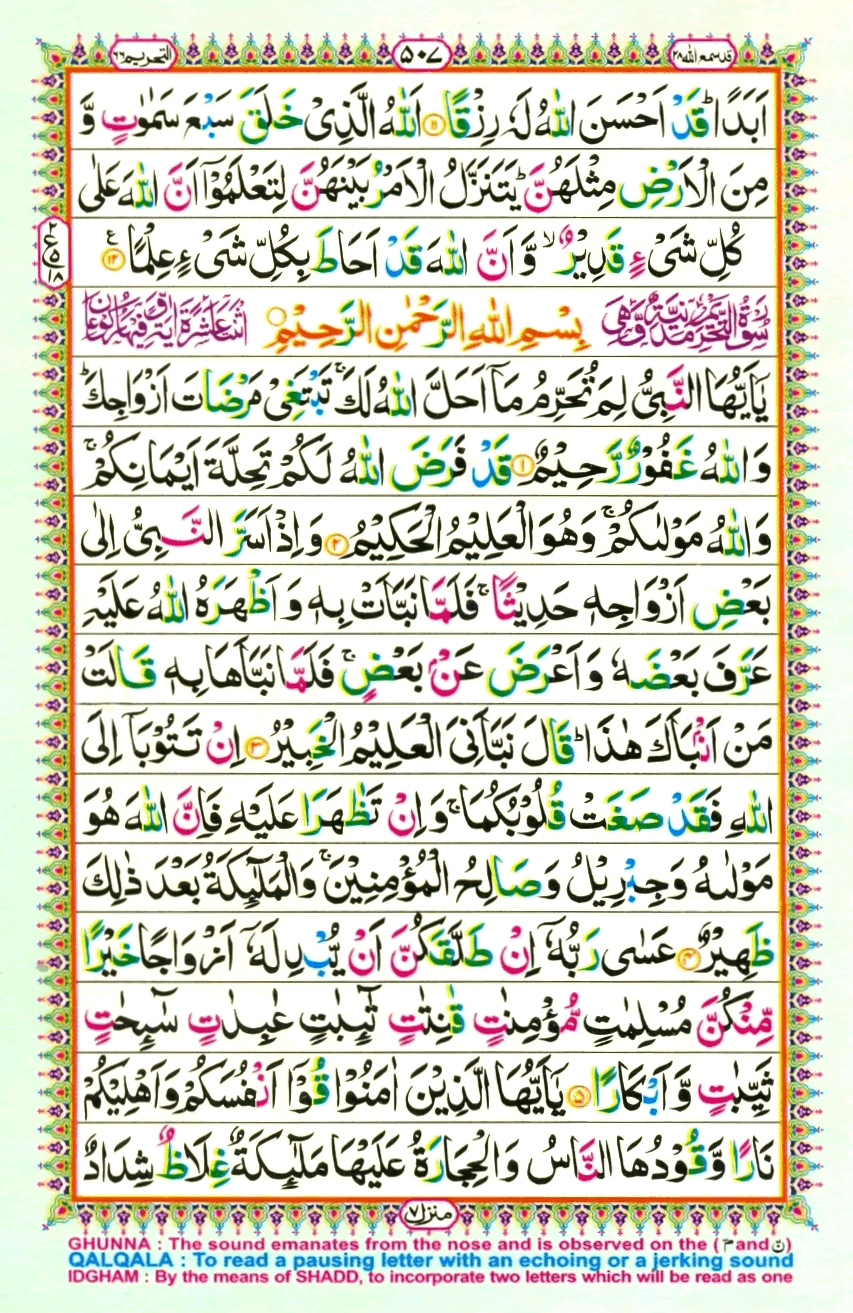 قد سمع الله ۲۸
۵۰۷
التحريم ۶۶
اَبَدًا ؕ قَدْ اَحْسَنَ اللّٰهُ لَهٗ رِزْقًا ۝۱۱ اَللّٰهُ الَّذِیْ خَلَقَ سَبْعَ سَمٰوٰتٍ وَّ
مِنَ الْاَرْضِ مِثْلَهُنَّ ؕ یَتَنَزَّلُ الْاَمْرُ بَیْنَهُنَّ لِتَعْلَمُوْۤا اَنَّ اللّٰهَ عَلٰی
كُلِّ شَیْءٍ قَدِیْرٌ ۙ وَّ اَنَّ اللّٰهَ قَدْ اَحَاطَ بِكُلِّ شَیْءٍ عِلْمًا ۝۱۲ ع
۲ ع ۵ ۱۸
سُوْرَةُ التَّحْرِیْمِ مَدَنِیَّةٌ وَّهِیَ بِسْمِ اللّٰهِ الرَّحْمٰنِ الرَّحِیْمِ۝ اثْنَتَا عَشْرَةَ اٰیَةً وَّفِیْهَا رُكُوْعَانِ
یٰۤاَیُّهَا النَّبِیُّ لِمَ تُحَرِّمُ مَاۤ اَحَلَّ اللّٰهُ لَكَ ۚ تَبْتَغِیْ مَرْضَاتَ اَزْوَاجِكَ ؕ
وَ اللّٰهُ غَفُوْرٌ رَّحِیْمٌ ۝۱ قَدْ فَرَضَ اللّٰهُ لَكُمْ تَحِلَّةَ اَیْمَانِكُمْ ۚ
وَ اللّٰهُ مَوْلٰىكُمْ ۚ وَ هُوَ الْعَلِیْمُ الْحَكِیْمُ ۝۲ وَ اِذْ اَسَرَّ النَّبِیُّ اِلٰی
بَعْضِ اَزْوَاجِهٖ حَدِیْثًا ۚ فَلَمَّا نَبَّاَتْ بِهٖ وَ اَظْهَرَهُ اللّٰهُ عَلَیْهِ
عَرَّفَ بَعْضَهٗ وَ اَعْرَضَ عَنْۢ بَعْضٍ ۚ فَلَمَّا نَبَّاَهَا بِهٖ قَالَتْ
مَنْ اَنْۢبَاَكَ هٰذَا ؕ قَالَ نَبَّاَنِیَ الْعَلِیْمُ الْخَبِیْرُ ۝۳ اِنْ تَتُوْبَاۤ اِلَی
اللّٰهِ فَقَدْ صَغَتْ قُلُوْبُكُمَا ۚ وَ اِنْ تَظٰهَرَا عَلَیْهِ فَاِنَّ اللّٰهَ هُوَ
مَوْلٰىهُ وَ جِبْرِیْلُ وَ صَالِحُ الْمُؤْمِنِیْنَ ۚ وَ الْمَلٰٓئِكَةُ بَعْدَ ذٰلِكَ
ظَهِیْرٌ ۝۴ عَسٰی رَبُّهٗۤ اِنْ طَلَّقَكُنَّ اَنْ یُّبْدِلَهٗۤ اَزْوَاجًا خَیْرًا
مِّنْكُنَّ مُسْلِمٰتٍ مُّؤْمِنٰتٍ قٰنِتٰتٍ تٰٓئِبٰتٍ عٰبِدٰتٍ سٰٓئِحٰتٍ
ثَیِّبٰتٍ وَّ اَبْكَارًا ۝۵ یٰۤاَیُّهَا الَّذِیْنَ اٰمَنُوْا قُوْۤا اَنْفُسَكُمْ وَ اَهْلِیْكُمْ
نَارًا وَّ قُوْدُهَا النَّاسُ وَ الْحِجَارَةُ عَلَیْهَا مَلٰٓئِكَةٌ غِلَاظٌ شِدَادٌ
منزل ۷
GHUNNA : The sound emanates from the nose and is observed on the ( مّ and نّ )
QALQALA : To read a pausing letter with an echoing or a jerking sound
IDGHAM : By the means of SHADD, to incorporate two letters which will be read as one